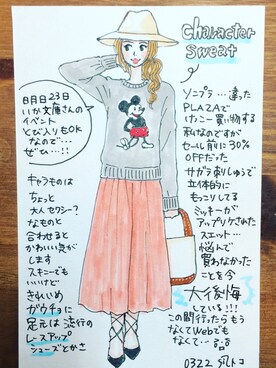 character
sweat
明日23日
いか文庫さんの
イベント
とび入りもOK
なので…
ぜひ…!!
キャラものは
ちょっと
大人セクシー？
なものと
合わせると
かわいい気が
します
スキニーでも
いいけど
きれいめ
ガウチョに
足元は流行の
レースアップ
シューズとかさ
ソニプラ…違った
PLAZAで
けっこー買い物する
私なのですが
セール前に30%
OFFだった
サガラ刺しゅうで
立体的に
もっこりしてる
ミッキーが
アップリケされた
スエット…
悩んで
買わなかった
ことを今
大後悔
している!!!
この間行ったらもう
なくてWebでも
なくて…
0322